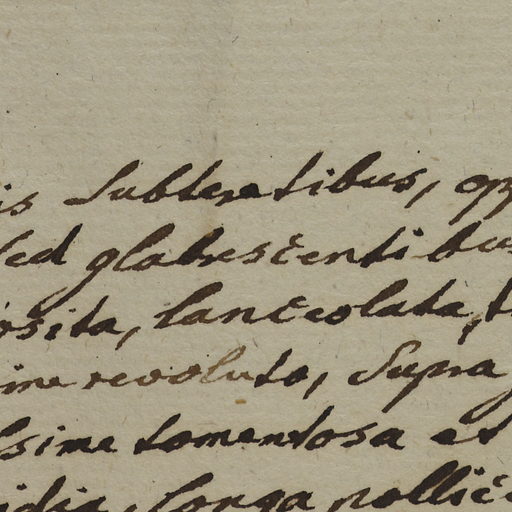 is subteretibus, op
sed glabrescentibus
osita, lanceolata, t
ime revoluto, supra g
sime tomentosa et
idia, longa pollic